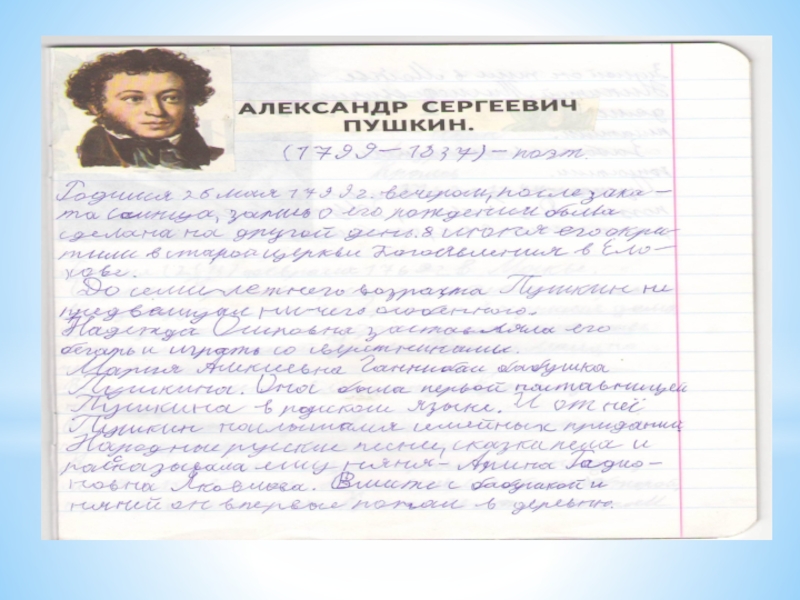 АЛЕКСАНДР СЕРГЕЕВИЧ
ПУШКИН.
(1799–1837) – поэт.
Родился 26 мая 1799 г. вечером, после зака-
та солнца, запись о его рождении была
сделана на другой день. 8 июня его окре-
тили в старой церкви Богоявления в Ело-
хове.
До семилетнего возраста Пушкин не
предвещал ничего особенного.
Надежда Осиповна заставляла его
бегать и играть со сверстниками.
Мария Алексевна Ганнибал бабушка
Пушкина. Она была первой наставницей
Пушкина в родском языке. И от неё
Пушкин наслышался семейных преданий
Народные русские песни, сказки пела и
рассказывала ему няня – Арина Родио-
новна Яковлева. Вместе с бабушкой и
няней он впервые попал в деревню.